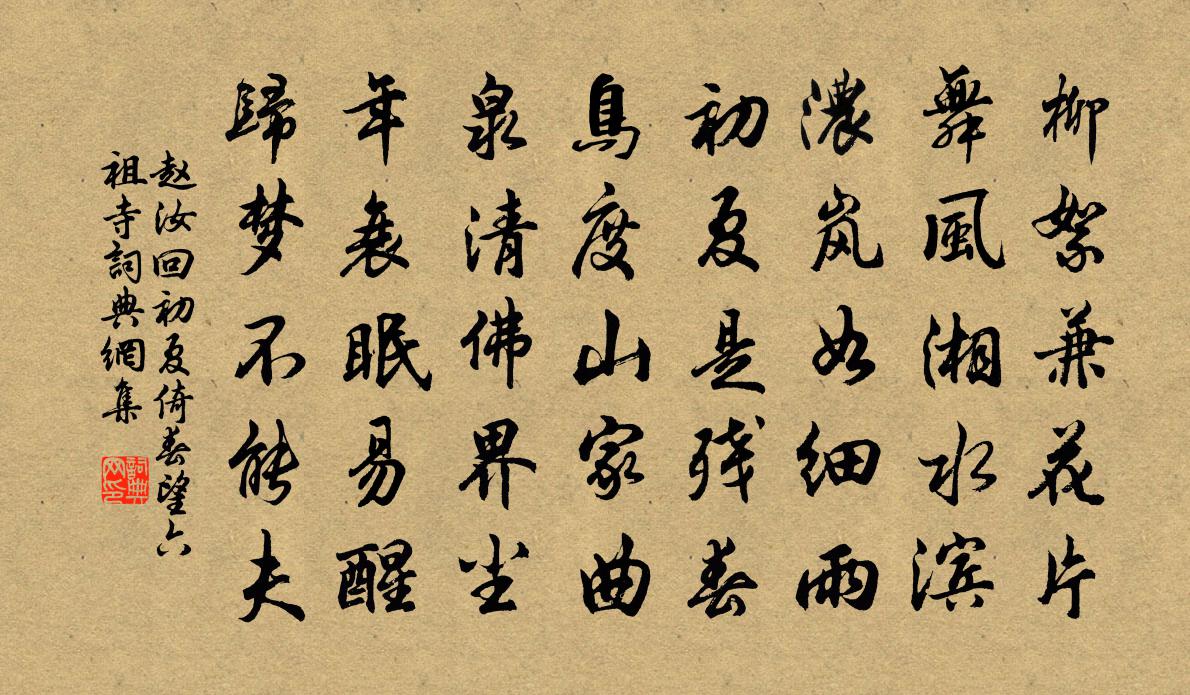 柳絮兼花片
舞風湘水滨
濃岚如细雨
初夏是残春
鳥度山家曲
泉清佛界尘
年衰眠易醒
歸梦不能夫
赵汝回初夏倚春望六
祖寺詞典網集
詞典
网印